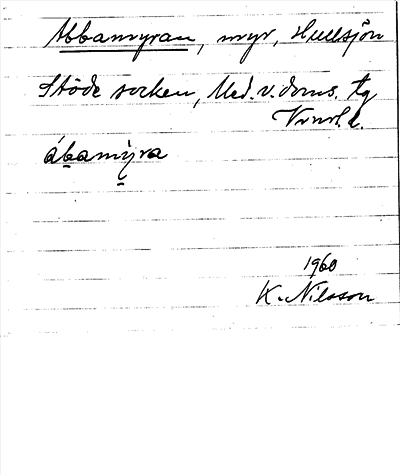 Abbamyran, myr, Hullsjön
Stöde socken, Med. v. doms. tg
Vnrl. l.
ábamỳra
1960
K. Nilsson